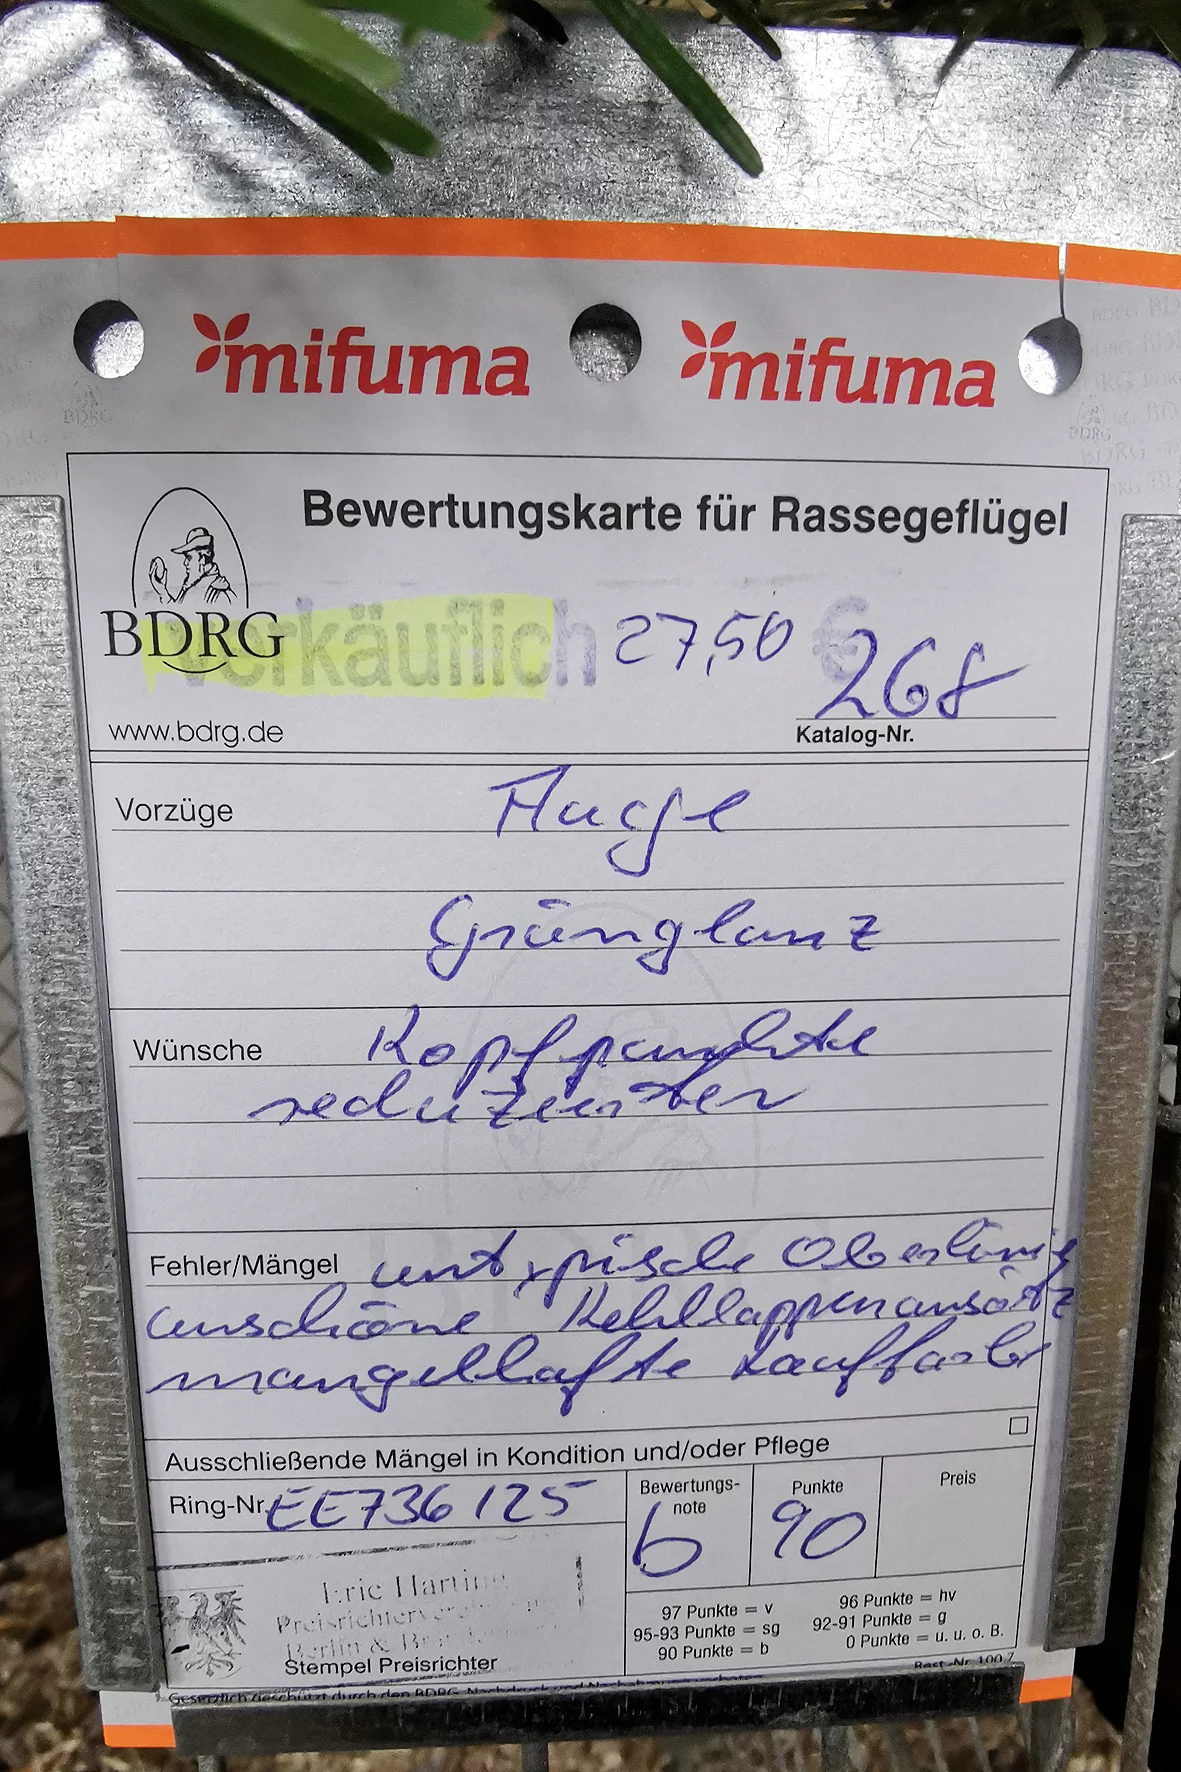 mifuma mifuma
Bewertungskarte für Rassegeflügel
BDRG
verkäuflich 27,50 €
268
www.bdrg.de
Katalog-Nr.
Vorzüge Auge
Grünglanz
Wünsche Kopfpunkte
reduzierter
Fehler/Mängel untypische Oberlinie
unschöne Kehllappenansätz
mangelhafte Lauffarbe
Ausschließende Mängel in Kondition und/oder Pflege
Ring-Nr. EE736 125
Bewertungs-
note
b
Punkte
90
Preis
Eric Harting
Berlin &
Stempel Preisrichter
97 Punkte = v
95-93 Punkte = sg
90 Punkte = b
96 Punkte = hv
92-91 Punkte = g
0 Punkte = u. u. o. B.
Best.-Nr. 100.7
Gesetzlich geschützt durch den BDRG.